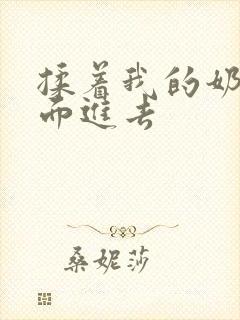 揉着我的奶
而进去
桑妮莎